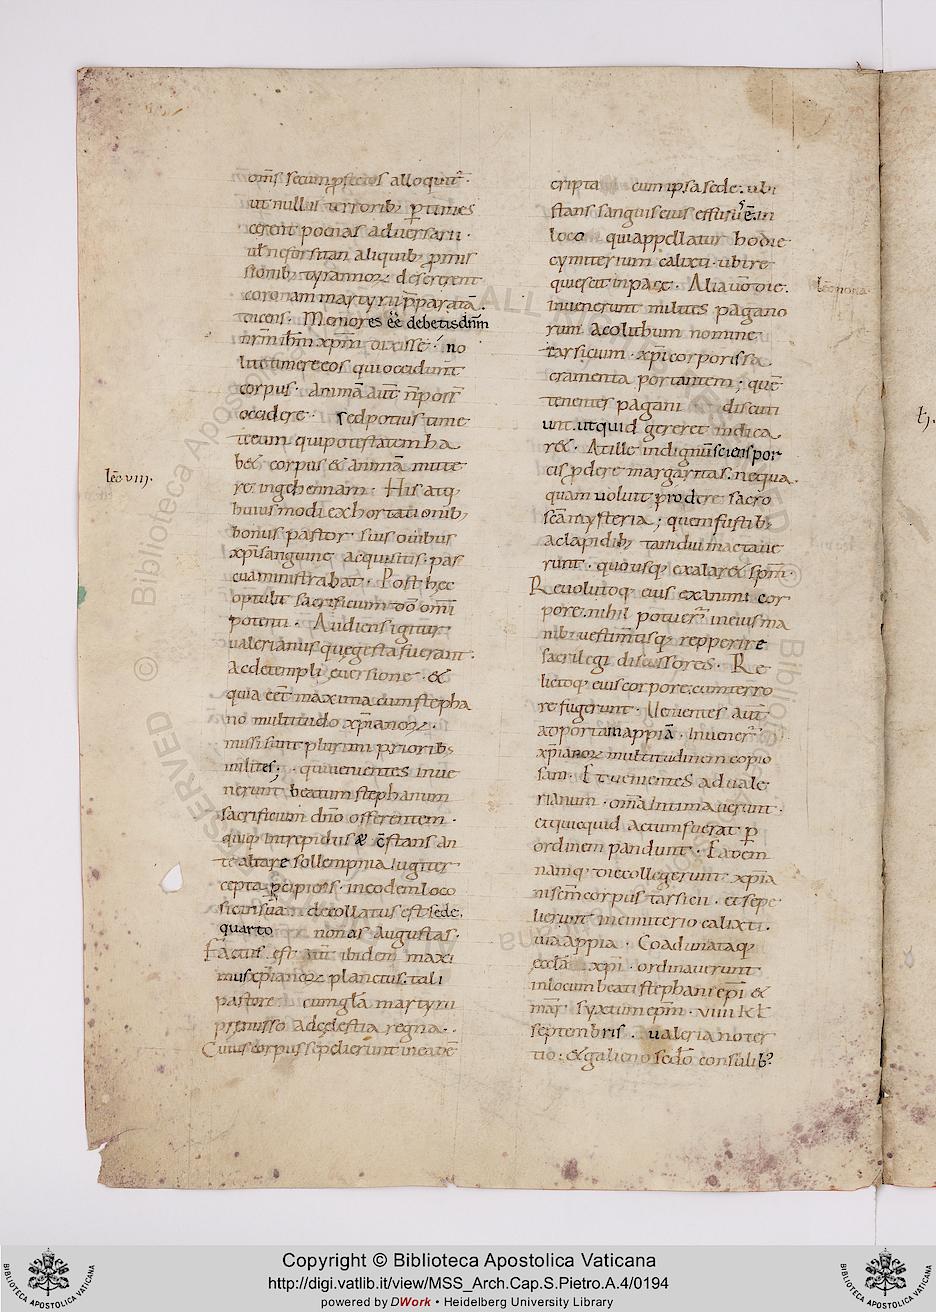 om̅s secum p̲sectos alloquit̅.
ut nullis terrorib; p̲times
cerent poenas adversarii.
ul̅ ne forsitan aliquib; p̲mis
sionib; tyrannoꝝ desererent
coronam martyrii p̅paratā.
dicens. Memores eē debetis dn̅m
nr̅m ihm̅ xpm̅ dixisse. no
lite timere eos qui occidunt
corpus. animā aut̅ n̅ poss̅
occidere. sed potius time
te eum qui potestatem ha
bet corpus & animā mitte
re in gehennam. His atq;
huiusmodi exhortationib;
bonus pastor suis ovibus
xpi sanguine acquisitis. pas
cua ministrabat. Post hec
optulit sacrificium dō om̅i
potenti. Audiens igitur
valerianus que gesta fuerant.
ac de templi eversione. &
quia eēt maxima cum stepha
no multitudo xp̅ianoꝝ.
missi sunt plurimi priorib;
milites. qui venientes inve
nerunt beatum stephanum
sacrificium dn̅o offerentem.
quiq; intrepidus & c̅stans an
te altare sollempnia iugiter
cepta p̲ficiens. in eodem loco
decollatus est sede.
quarto nonas augustas.
Factus est aut̅ ibidem maxi
mus xp̅ianoꝝ planctus. tali
pastore cum gl̅a martyrii
premisso ad celestia regna.
Cuius corpus sepelierunt in eadē
lēc viii.
cripta cum ipsa sede. ubi
stans sanguis eius effusus ē. in
loco qui appellatur hodie
cymiterium calixti. ubi re
quiescit in pace. Alia v̅o die.
invenerunt milites pagano
rum acolithum nomine
tarsicium. xpi corporis sa
cramenta portantem. quē
tenentes pagani discuti
unt. ut quid gereret indica
ret. At ille indignū sciens por
cis p̲dere margaritas. nequa
quam voluit prodere sacro
scā mysteria; quem fustib;
ac lapidib; tam diu mactave
runt. quousq; exalaret spm̅.
Revolutoq; eius exanimi cor
pore. nihil potuer̅ in eius ma
nib; vestim̅tisq; repperire
sacrilegi discussores. Re
lictoq; eius corpore. cum terro
re fugerunt. Venientes aut̅
ad portam appiā. Invener̅
xp̅ianoꝝ multitudinem copio
sam. Et venientes ad vale
rianum. om̅a intimaverunt.
et quicquid actum fuerat p̲
ordinem pandunt. Eadem
namq; die collegerunt xp̅ia
ni sc̅m corpus tarsicii. et sepe
lierunt in cimiterio calixti.
via appia. Coadunataq;
eccl̅a xpi. ordinaverunt
in locum beati stephani ep̅i &
mar̅ syxtum ep̅m. viiii kl̅
septembris. valeriano ter
tio. & galieno sedō consulib;
lēc nona
Copyright © Biblioteca Apostolica Vaticana
http://digi.vatlib.it/view/MSS_Arch.Cap.S.Pietro.A.4/0194
powered by DWork • Heidelberg University Library
BIBLIOTECA APOSTOLICA VATICANA
BIBLIOTECA APOSTOLICA VATICANA